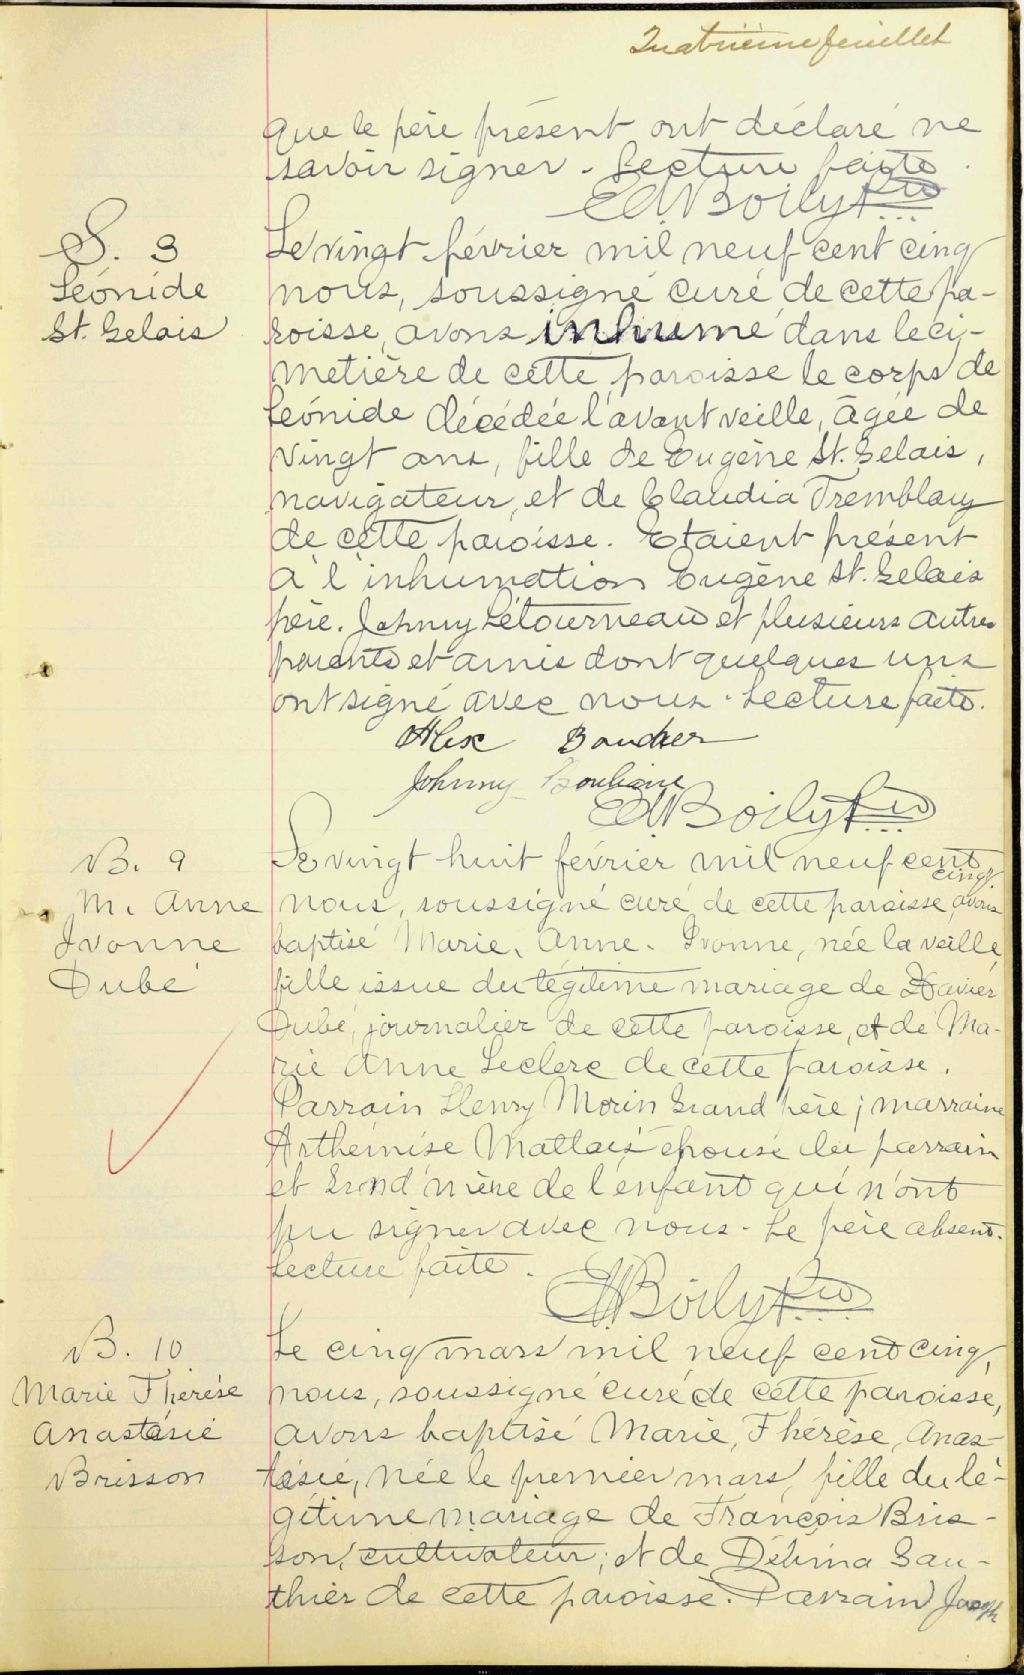 Quatrième feuillet
que le père présent ont déclaré ne
savoir signer. Lecture faite.
Ed Boily Ptre
S. 3
Léonide
St. Gelais
Le vingt février mil neuf cent cinq
nous, soussigné curé de cette pa-
roisse, avons inhumé dans le ci-
metière de cette paroisse le corps de
Léonide décédée l'avant veille, âgée de
vingt ans, fille de Eugène St. Gelais,
navigateur, et de Claudia Tremblay
de cette paroisse. Etaient présent
à l'inhumation Eugène St. Gelais
père. Johnny Létourneau et plusieurs autres
parents et amis dont quelques uns
ont signé avec nous. Lecture faite.
Alex Boucher
Johnny Bouliane
Ed Boily Ptre
B. 9
M. Anne
Ivonne
Dubé
Le vingt huit février mil neuf cent
cinq
nous, soussigné curé de cette paroisse, avons
baptisé Marie, Anne, Ivonne, née la veille,
fille issue du légitime mariage de Xavier
Dubé, journalier de cette paroisse, et de Ma-
rie Anne Leclerc de cette paroisse.
Parrain Henry Morin Grand père; marraine
Arthémise Maltais épouse du parrain
et Grand'mère de l'enfant qui n'ont
pu signer avec nous. Le père absent.
Lecture faite.
Ed Boily Ptre
B. 10
Marie Thérèse
Anastasie
Brisson
Le cinq mars mil neuf cent cinq,
nous, soussigné curé de cette paroisse,
avons baptisé Marie, Thérèse, Anas-
tasie, née le premier mars, fille du lé-
gitime mariage de François Bris-
son, cultivateur, et de Délima Gau-
thier de cette paroisse. Parrain Joseph